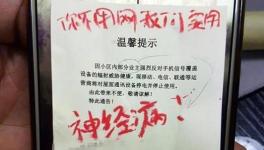 你不用网我们要用
温馨提示
因小区内部分业主强烈反对手机信号覆盖
设备的辐射威胁健康，现移动、电信、联通等运
营商将对屋面通讯设备停电并停止使用。
由此带来不便，敬请谅解！
特此通告！
神经病！